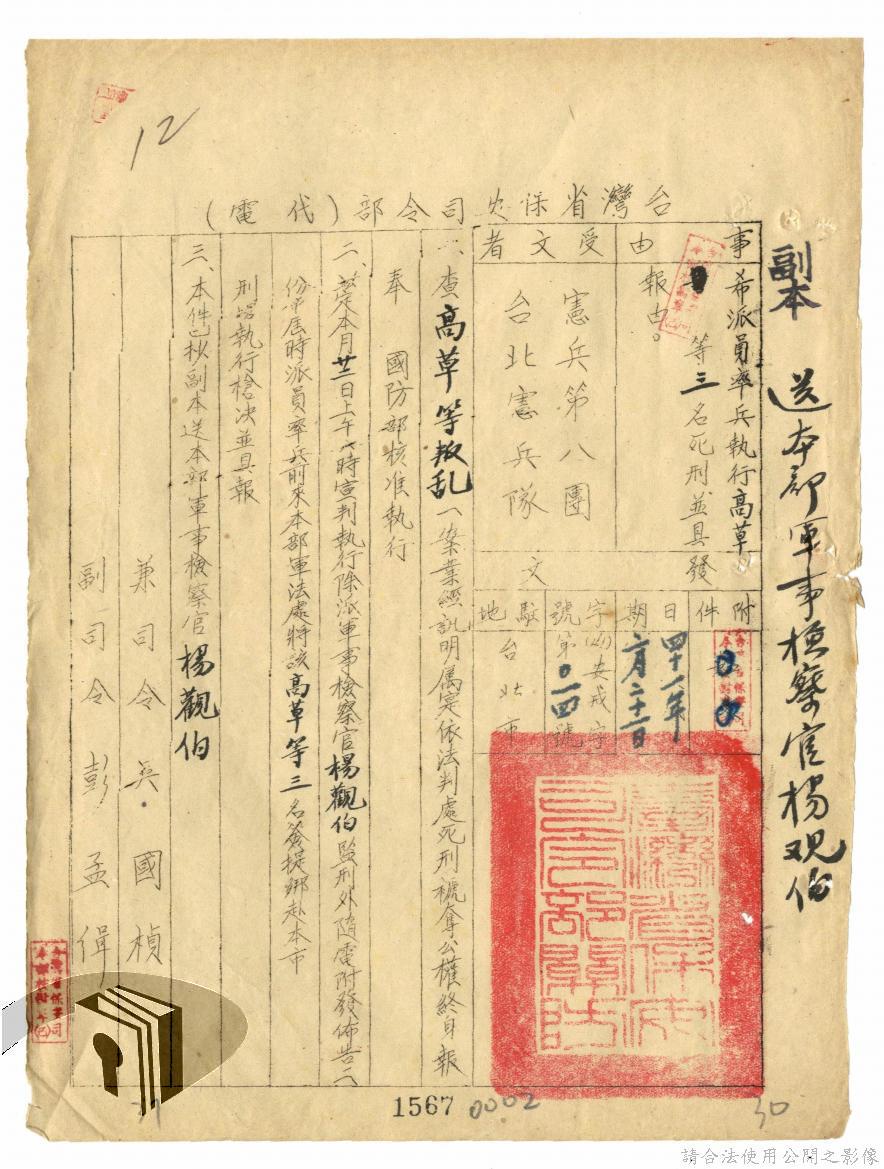 12
副本 送本部軍事檢察官楊观伯
台灣省保安司令部(代電)
事由
希派員率兵執行高草
等三名死刑並具
報由。
受文者
憲兵第八團
台北憲兵隊
附件
發文
日期
四十一年
六月二十一日
字號
安戒字
第〇一四號
駐地
台北市
一、查高草等叛乱一案業經訊明属实依法判處死刑褫奪公權終身報
奉 國防部核准執行
二、茲定本月廿二日上午六時宣判執行除派軍事檢察官楊觀伯監刑外隨電附發佈告二
份希屆時派員率兵前來本部軍法處將該高草等三名簽提綁赴本市
刑場執行槍决並具報
三、本件已抄副本送本部軍事檢察官楊觀伯
兼司令吳國楨
副司令彭孟緝
台灣省保安司令部關防
1567
0002
30
請合法使用公開之影像